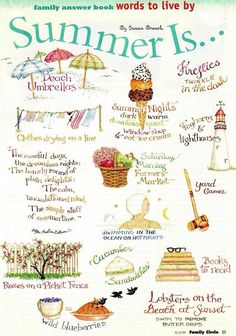 family answer book words to live by
By Susan Branch
Summer Is...
Peach
Umbrellas
Fireflies
TWINKLE
in the dark
Summer Nights
dark & warm
downtown
Window shop
& eat ice cream
Foghorns &
lighthouses
Clothes drying on a line
"The careful days,
the dreamless nights:
The homely round of
plain delights:
The calm,
unambitioned mind,
The simple stuff
of summertime."
Saturday
Morning
Farmer's
Market
Yard
Games
SWIMMING IN THE
OCEAN ON HOT NIGHTS
Roses on a Picket Fence
Cucumber
Sandwiches
Books
to read
wild blueberries
Lobsters on the
Beach at Sunset
SWIM TO REMOVE
BUTTER DRIPS
Family Circle